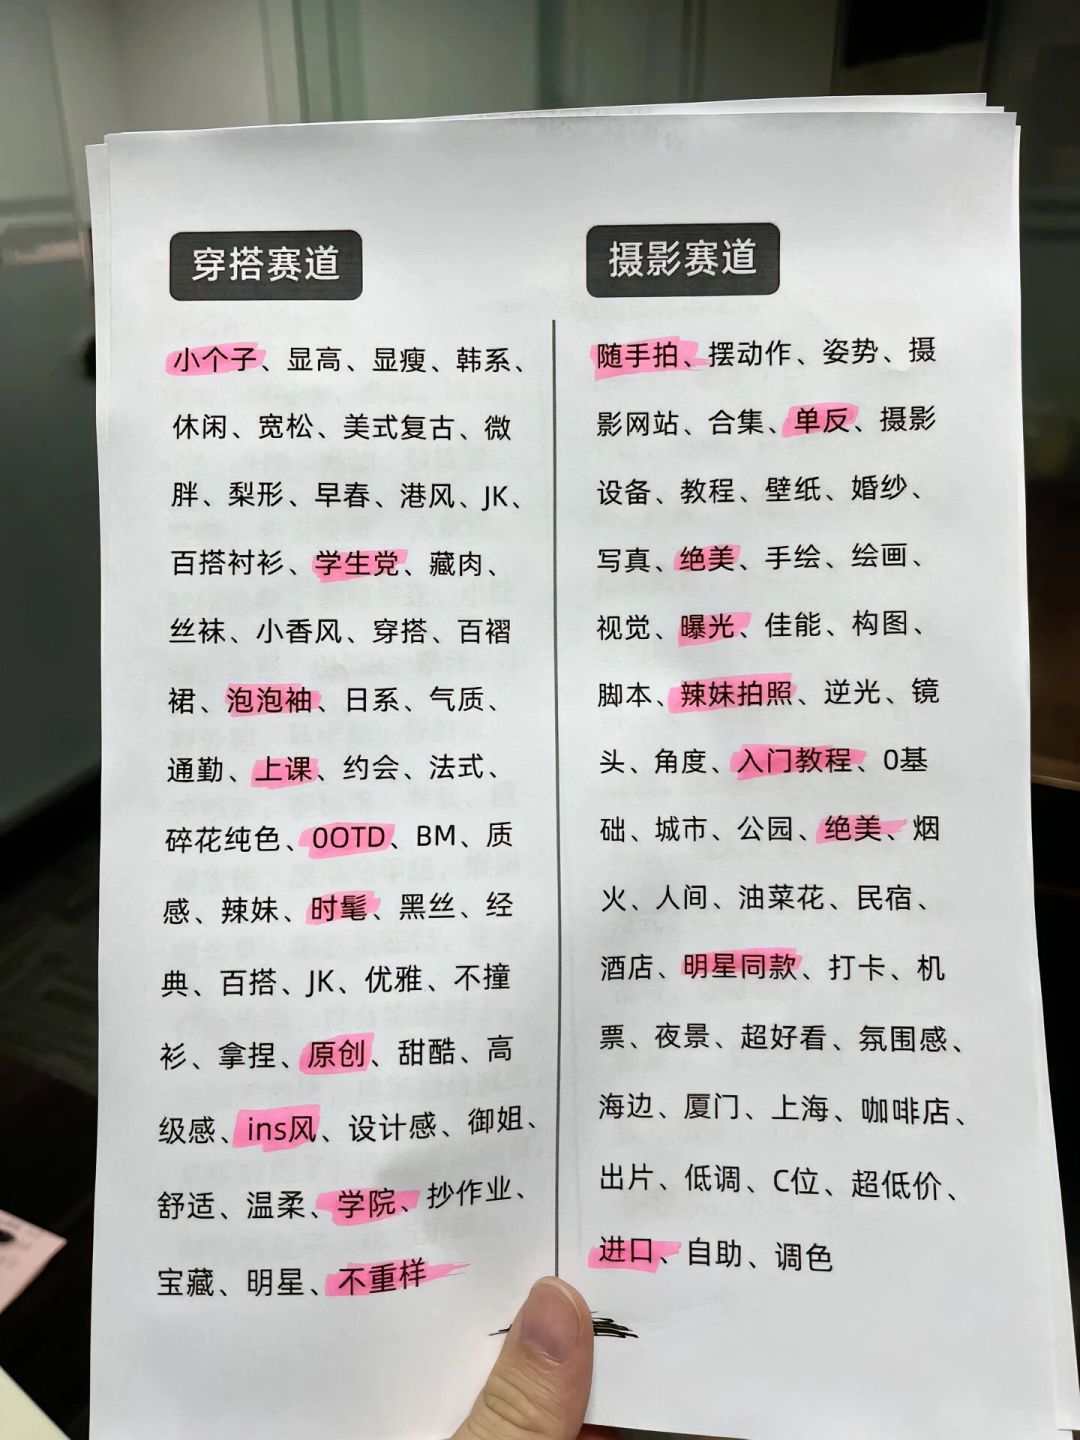 穿搭赛道
小个子、显高、显瘦、韩系、
休闲、宽松、美式复古、微
胖、梨形、早春、港风、JK、
百搭衬衫、学生党、藏肉、
丝袜、小香风、穿搭、百褶
裙、泡泡袖、日系、气质、
通勤、上课、约会、法式、
碎花纯色、0OTD、BM、质
感、辣妹、时髦、黑丝、经
典、百搭、JK、优雅、不撞
衫、拿捏、原创、甜酷、高
级感、ins风、设计感、御姐、
舒适、温柔、学院、抄作业、
宝藏、明星、不重样
摄影赛道
随手拍、摆动作、姿势、摄
影网站、合集、单反、摄影
设备、教程、壁纸、婚纱、
写真、绝美、手绘、绘画、
视觉、曝光、佳能、构图、
脚本、辣妹拍照、逆光、镜
头、角度、入门教程、0基
础、城市、公园、绝美、烟
火、人间、油菜花、民宿、
酒店、明星同款、打卡、机
票、夜景、超好看、氛围感、
海边、厦门、上海、咖啡店、
出片、低调、C位、超低价、
进口、自助、调色